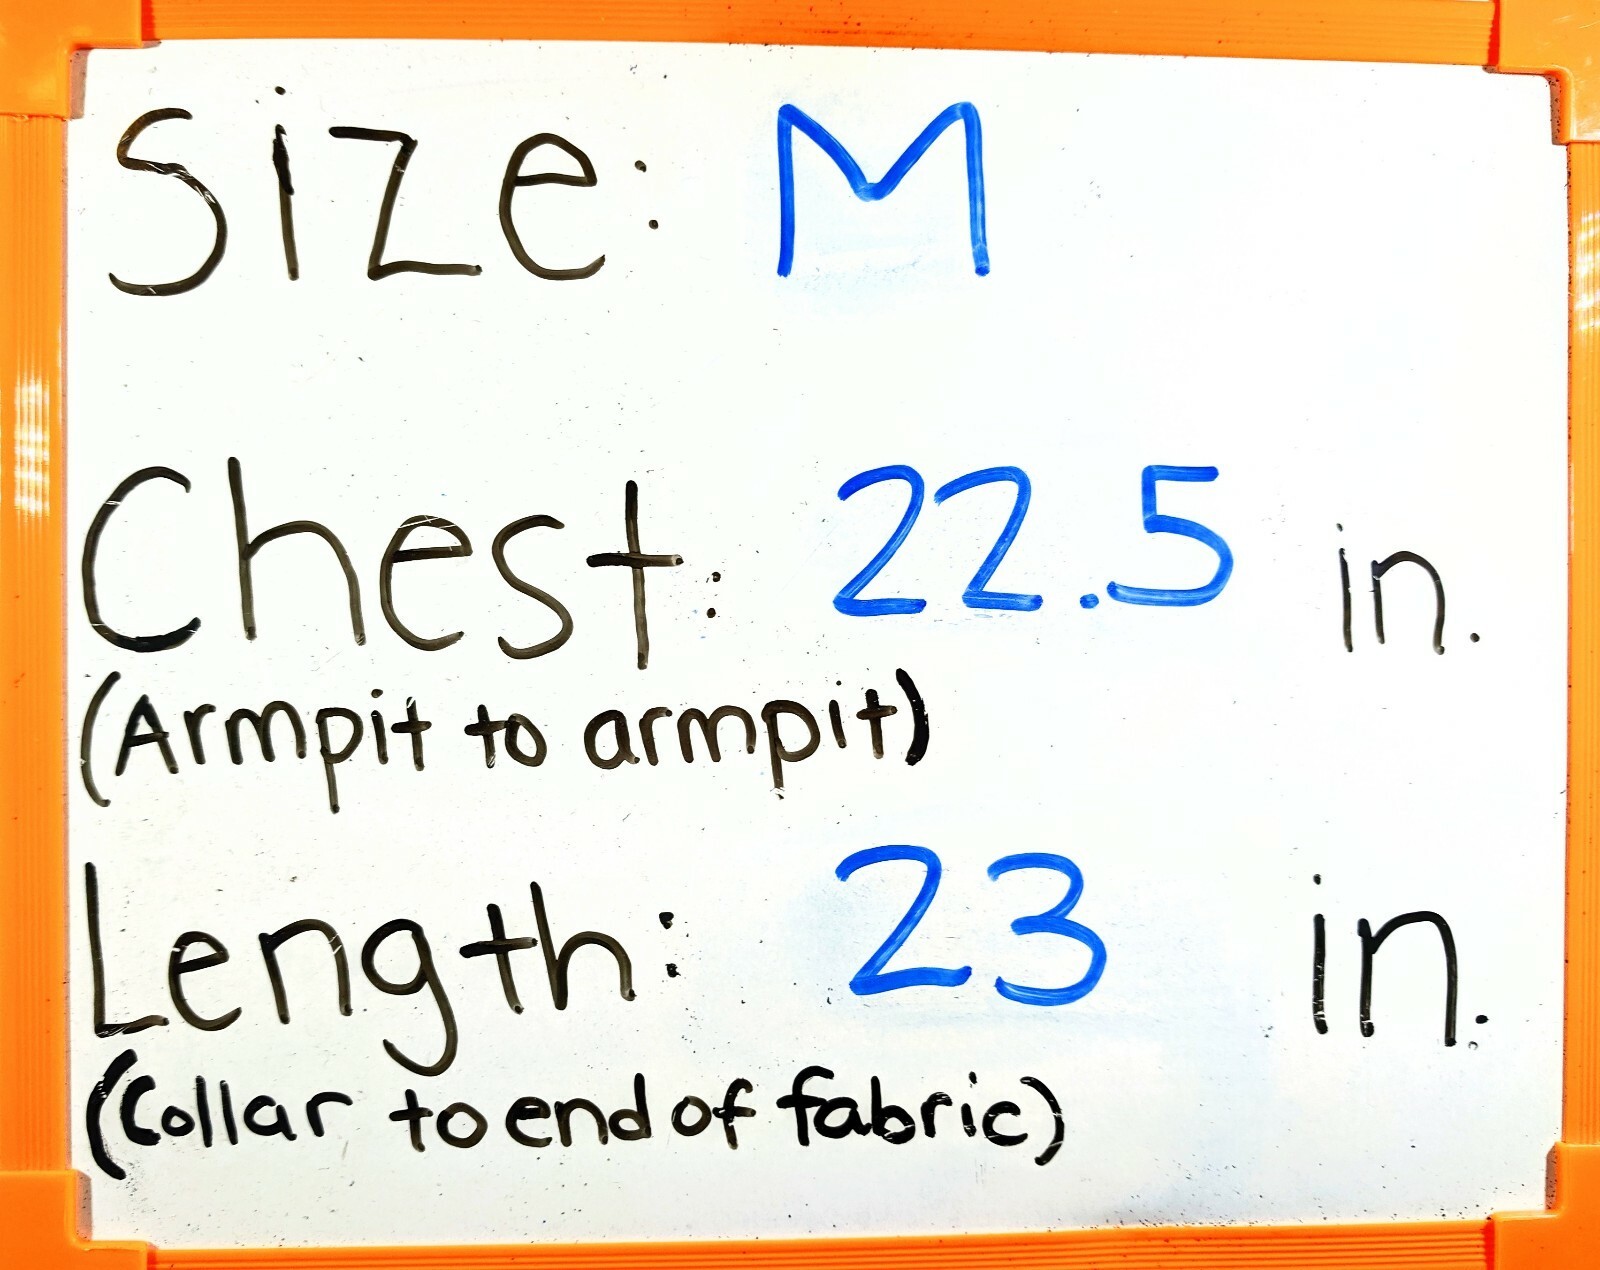 Size: M
Chest: 22.5 in.
(Armpit to armpit)
Length: 23 in.
(Collar to end of fabric)